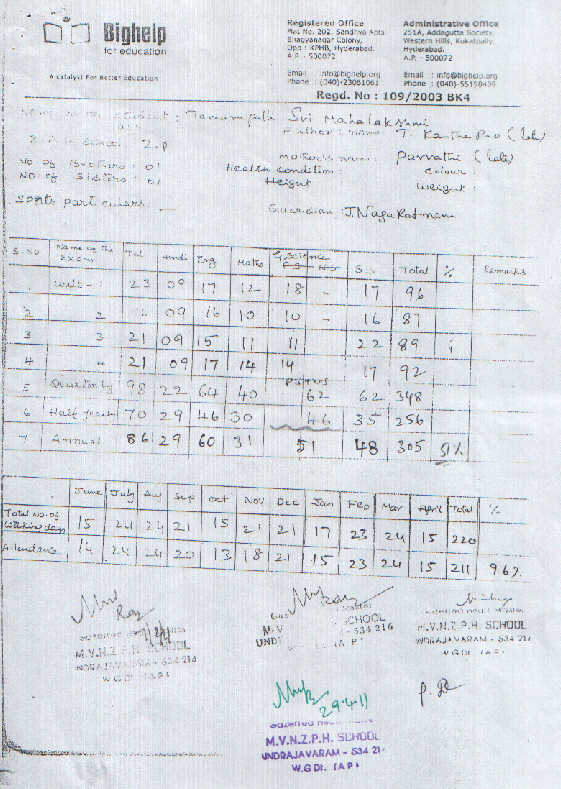 Bighelp
for education
A Catalyst For Better Education
Registered Office
Plot No. 202, Sendriya Apts
Bhagyanagar Colony,
Opp : KPHB, Hyderabad.
A.P. - 500072
Email : info@bighelp.org
Phone : (040)-23061061
Administrative Office
251A, Addagutta Society,
Western Hills, Kukatpally,
Hyderabad.
A.P. - 500072
Email : info@bighelp.org
Phone : (040)-55158499
Regd. No : 109/2003 BK4
Sri Mahalakshmi
Z.P
No of Brothers : 01
Mother's name : Parvathi (late)
No of Sisters : 01
Health condition :
Colour :
Height
Weight :
Sports particulars
Guardian : J. Naga Ratnam
S.No Name of the Exam Tel Hindi Eng Maths G.Science P.S N.S S.S Total % Remarks
Unit - 23 09 17 12 18 - 17 96
2 2 09 16 10 10 - 16 87
3 3 21 09 15 11 11 22 89
4 21 09 17 14 14 17 92
5 Quarterly 98 22 64 40 62 62 348
6 Half yearly 70 29 46 30 46 35 256
7 Annual 86 29 60 31 51 48 305 51%
June July Aug Sep Oct Nov Dec Jan Feb Mar April Total %
Total No. of working days 15 24 24 21 15 21 21 17 23 24 15 220
Attendance 14 24 24 20 13 18 21 15 23 24 15 211 96%
M.V.N.Z.P.H. SCHOOL
UNDRAJAVARAM - 534 216
W.G.Dt. (A.P.)
SCHOOL
- 534 216
(A.P.)
M.V.N.Z.P.H. SCHOOL
UNDRAJAVARAM - 534 216
W.G.Dt. (A.P.)
29.4.11
M.V.N.Z.P.H. SCHOOL
UNDRAJAVARAM - 534 21
W.G.Dt. (A.P.)